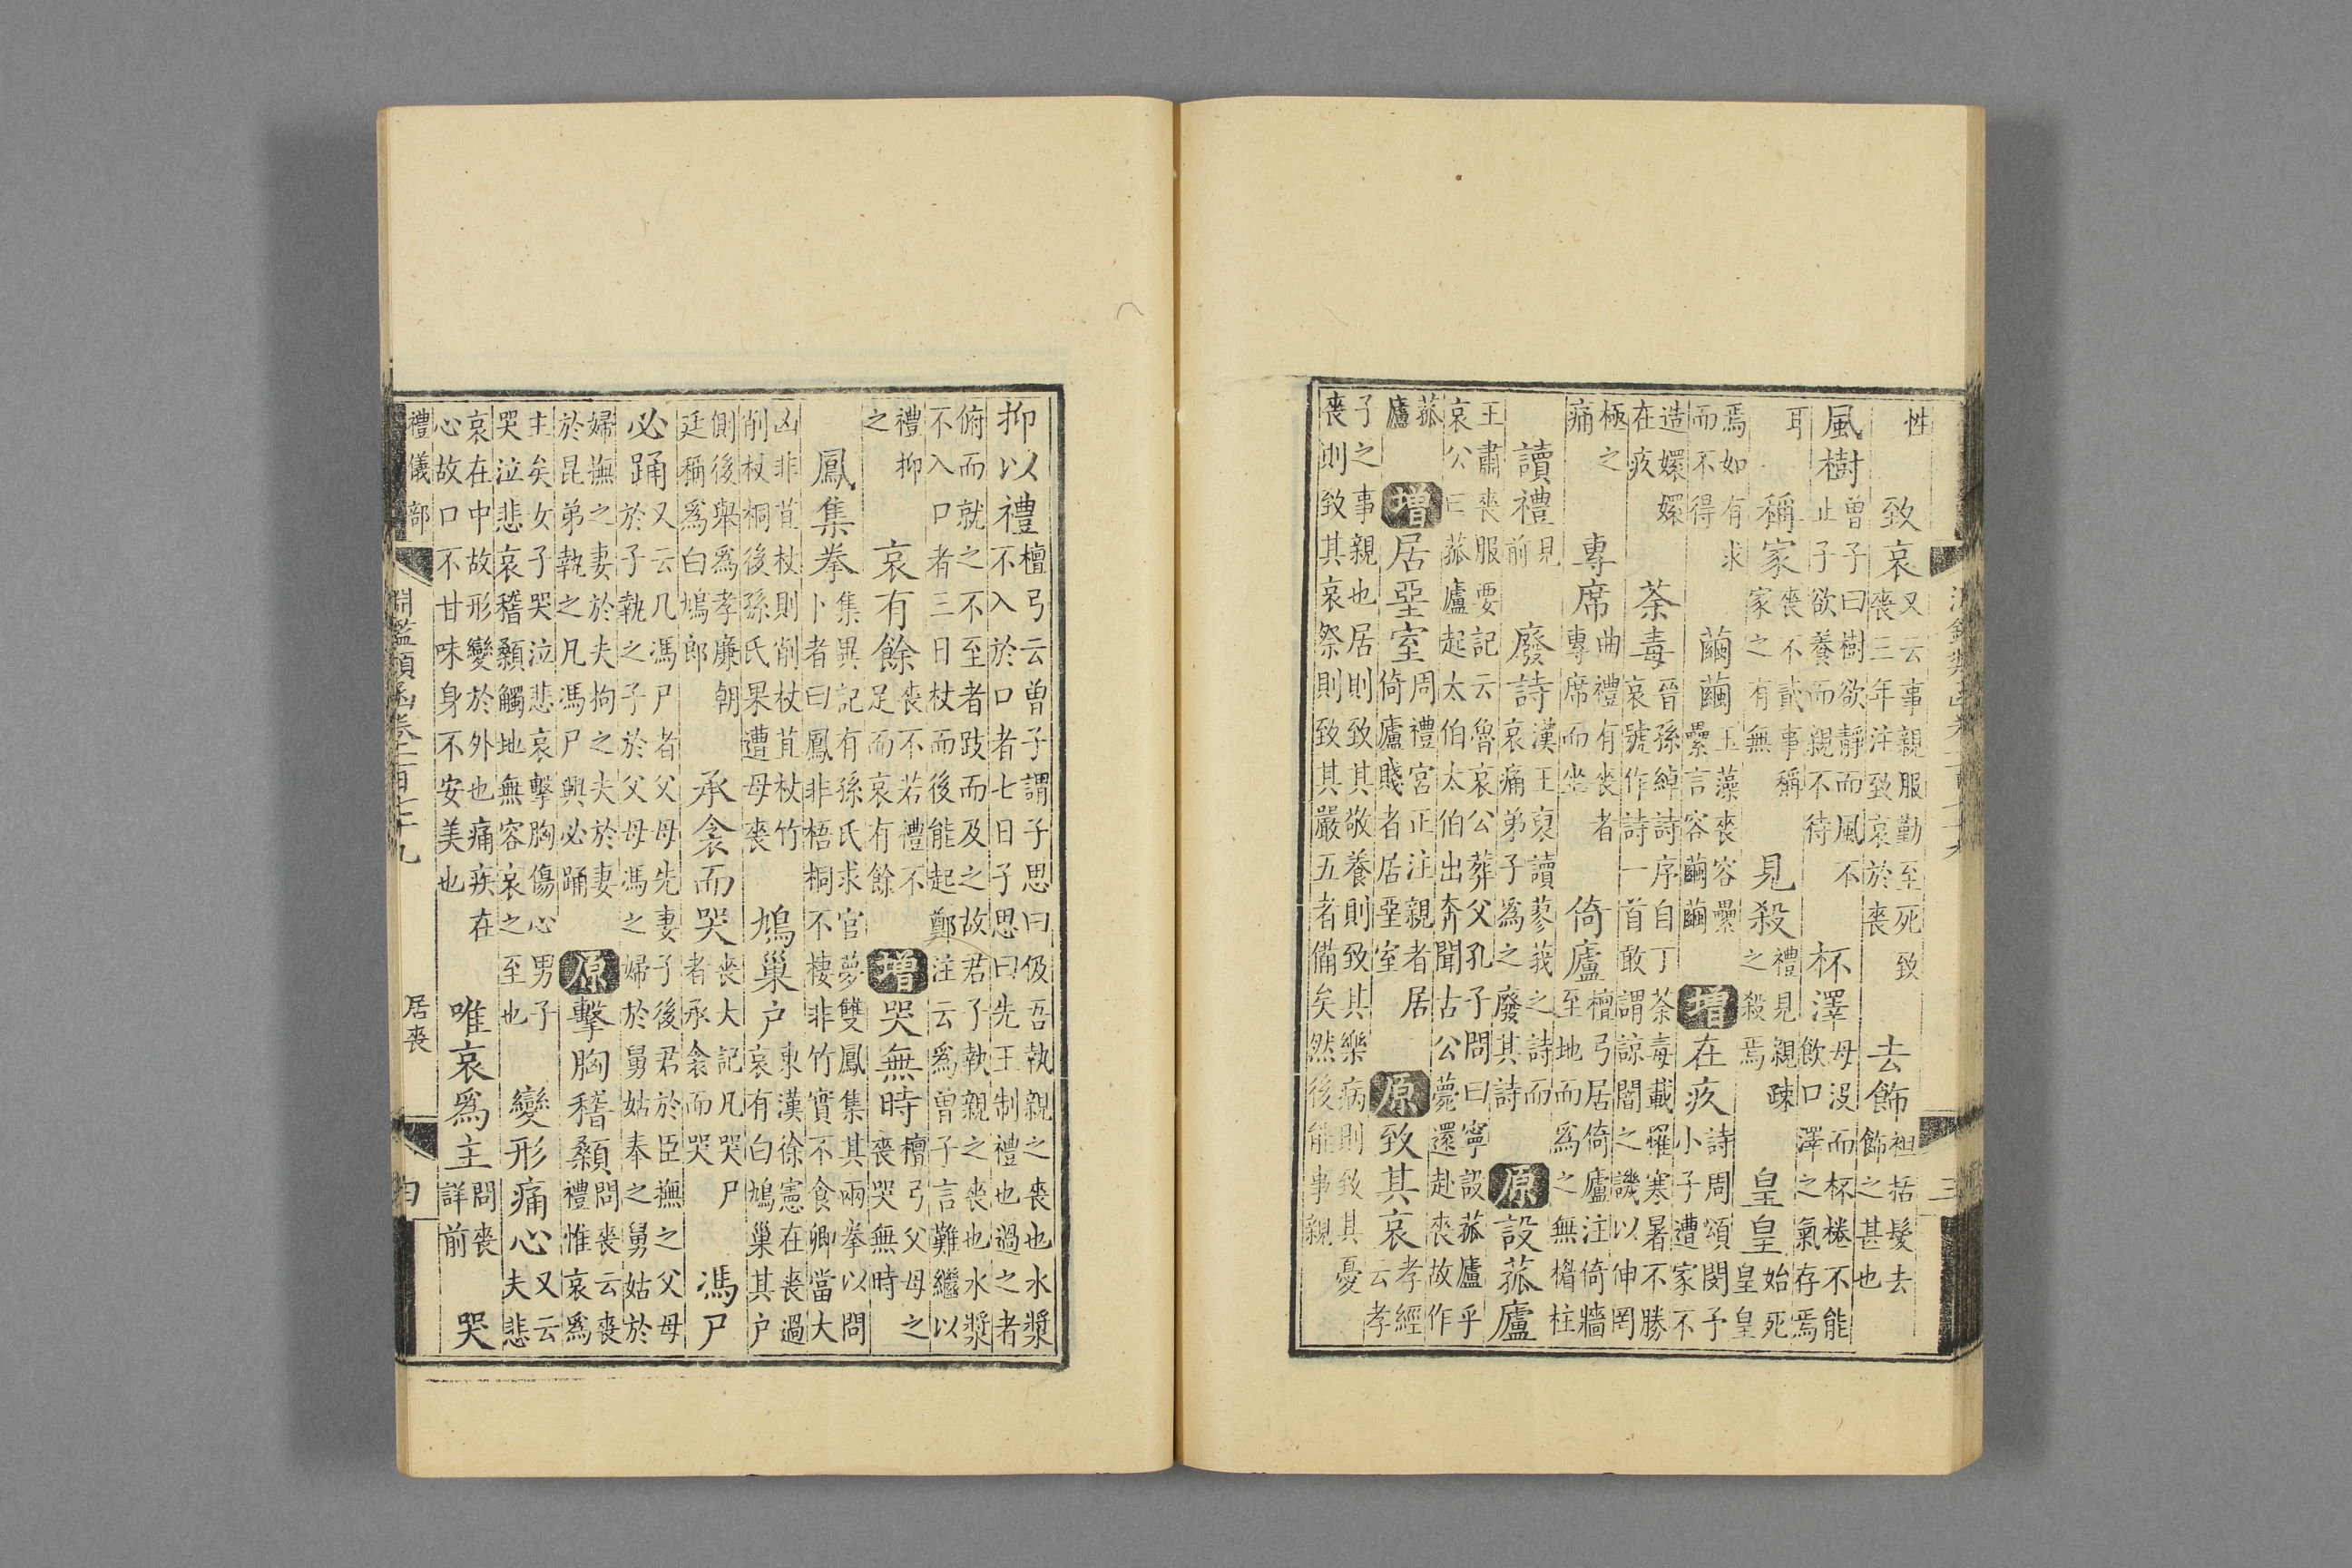 性致哀又云事親服勤至死致喪三年注致哀於喪去飾袒括髮去飾之甚也
風樹曾子曰樹欲靜而風不止子欲養而親不待杯澤母没而杯棬不能飲口澤之氣存焉
耳稱家喪不貳事稱家之有無見殺禮見親疎之殺焉皇皇始死皇皇
焉如有求而不得繭繭玉藻喪容纍纍言容繭繭增在疚詩周頌閔予小子遭家不
造嬛嬛在疚荼毒晉孫綽詩序自丁荼毒載罹寒暑不勝哀號作詩一首敢謂諒闇之譏以伸罔
極之痛專席曲禮有喪者專席而坐倚廬檀弓居倚廬注倚牆至地而爲之無楣柱
讀禮見前廢詩漢王裒讀蓼莪之詩而哀痛弟子爲之廢其詩原設菰廬
王肅喪服要記云魯哀公葬父孔子問曰寧設菰廬乎哀公曰菰廬起太伯太伯出奔聞古公薨還赴喪故作
菰廬增居堊室周禮宮正注親者居倚廬賤者居堊室原致其哀孝經云孝
子之事親也居則致其敬養則致其樂病則致其憂喪則致其哀祭則致其嚴五者備矣然後能事親
抑以禮檀弓云曾子謂子思曰伋吾執親之喪也水漿不入於口者七日子思曰先王制禮也過之者
俯而就之不至者跂而及之故君子執親之喪也水漿不入口者三日杖而後能起鄭注云爲曾子言難繼以
禮抑之哀有餘喪不若禮不足而哀有餘增哭無時檀弓父母之喪哭無時
鳳集拳集異記有孫氏求官夢雙鳳集其兩拳以問卜者曰鳳非梧桐不棲非竹實不食卿當大
凶非苴杖則削杖苴杖竹削杖桐後孫氏果遭母喪鳩巢户東漢徐憲在喪過哀有白鳩巢其户
側後舉爲孝廉朝廷稱爲白鳩郎承衾而哭喪大記凡哭尸者承衾而哭馮尸
必踊又云凡馮尸者父母先妻子後君於臣撫之父母於子執之子於父母馮之婦於舅姑奉之舅姑於
婦撫之妻於夫拘之夫於妻於昆弟執之凡馮尸興必踊原擊胸稽顙問喪云喪禮惟哀爲
主矣女子哭泣悲哀擊胸傷心男子哭泣悲哀稽顙觸地無容哀之至也變形痛心又云夫悲
哀在中故形變於外也痛疾在心故口不甘味身不安美也唯哀爲主問喪詳前哭
禮儀部 淵鑑類函卷二百七十九 居喪 四